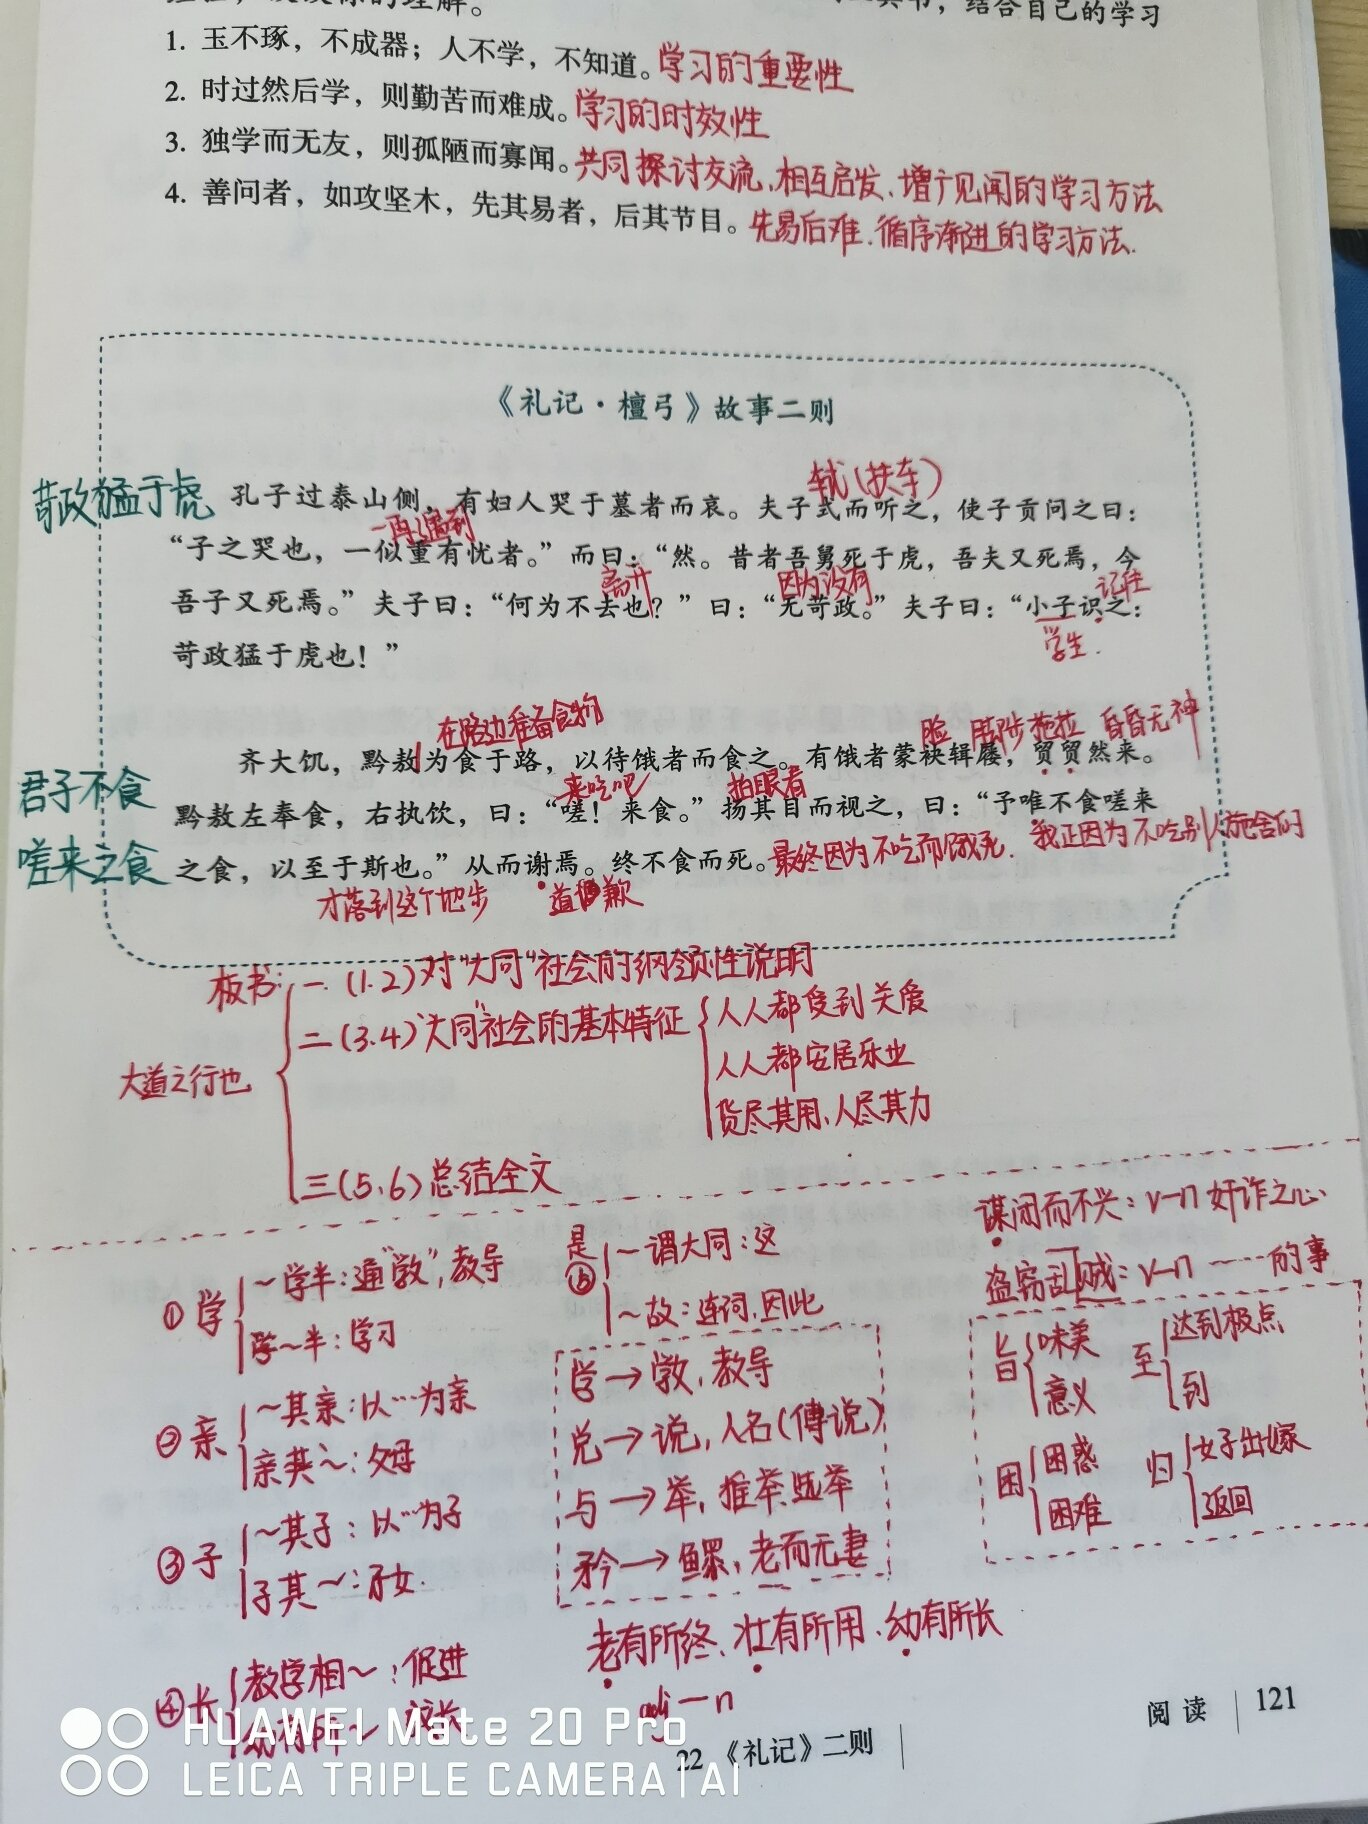 结合自己的学习
1. 玉不琢，不成器；人不学，不知道。学习的重要性
2. 时过然后学，则勤苦而难成。学习的时效性
3. 独学而无友，则孤陋而寡闻。共同探讨交流，相互启发、增广见闻的学习方法
4. 善问者，如攻坚木，先其易者，后其节目。先易后难.循序渐进的学习方法.
《礼记·檀弓》故事二则
轼(扶车)
苛政猛于虎 孔子过泰山侧，有妇人哭于墓者而哀。夫子式而听之，使子贡问之曰：
一再遇到
“子之哭也，一似重有忧者。”而曰：“然。昔者吾舅死于虎，吾夫又死焉，今
离开 因为没有 记住
吾子又死焉。”夫子曰：“何为不去也？”曰：“无苛政。”夫子曰：“小子识之：
学生.
苛政猛于虎也！”
在路边准备食物 脸 脚步拖拉 昏昏无神
齐大饥，黔敖为食于路，以待饿者而食之。有饿者蒙袂辑屦，贸贸然来。
君子不食 来吃吧 抬眼看
黔敖左奉食，右执饮，曰：“嗟！来食。”扬其目而视之，曰：“予唯不食嗟来
嗟来之食 之食，以至于斯也。”从而谢焉。终不食而死。最终因为不吃而饿死. 我正因为不吃别人施舍的
才落到这个地步 道歉
板书: 一.(1.2)对“大同”社会的纲领性说明
二(3.4)“大同”社会的基本特征 人人都受到关爱
人人都安居乐业
大道之行也
货尽其用、人尽其力
三(5、6)总结全文
谋闭而不兴：v—n 奸诈之心
盗窃乱贼：v—n ……的事
①学 ~学半：通“敩”，教导
学~半：学习
是⑤ ~谓大同：这
~故：连词，因此
②亲 ~其亲：以…为亲
亲其~：父母
③子 ~其子：以…为子
子其~：子女.
④长 教学相~：促进
幼有所~
学→敩，教导
兑→说，人名(傅说)
与→举，推举选举
矜→鳏，老而无妻
旨 味美
意义
至 达到极点
到
困 困惑
困难
归 女子出嫁
返回
老有所终、壮有所用、幼有所长
adj—n
阅读 121
22 《礼记》二则
HUAWEI Mate 20 Pro
LEICA TRIPLE CAMERA | AI